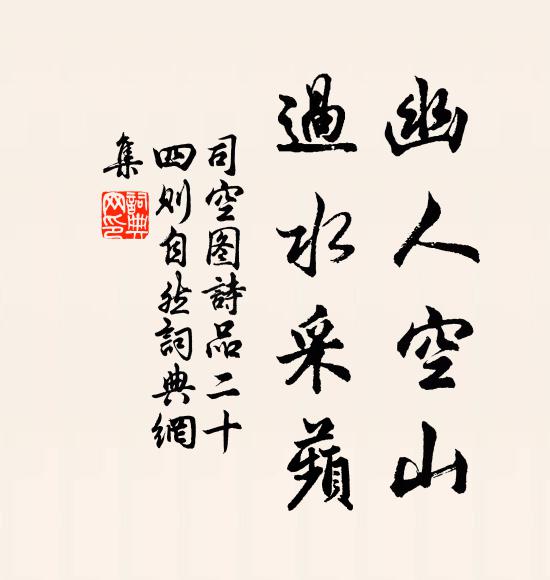 幽人空山
過水采蘋
司空图詩品二十
四则自然詞典網
集
詞典
网印